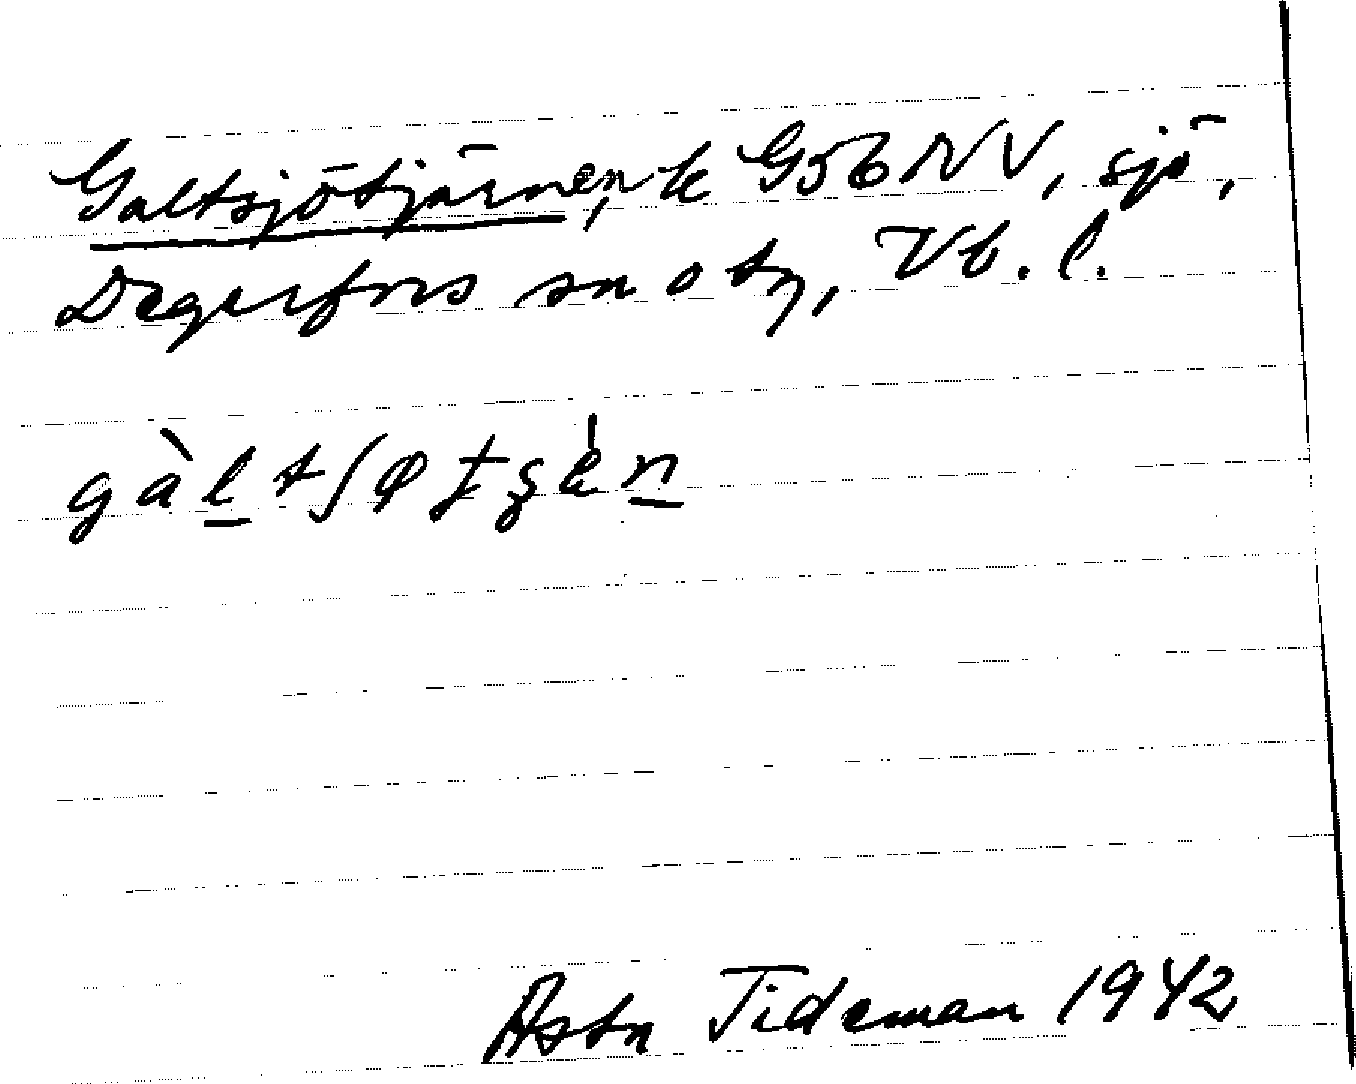 Galtsjötjärnen, k G56NV, sjö,
Degerfors sn o tg, Vb. l.
gàltʃøtʒèn
Asta Tideman 1942